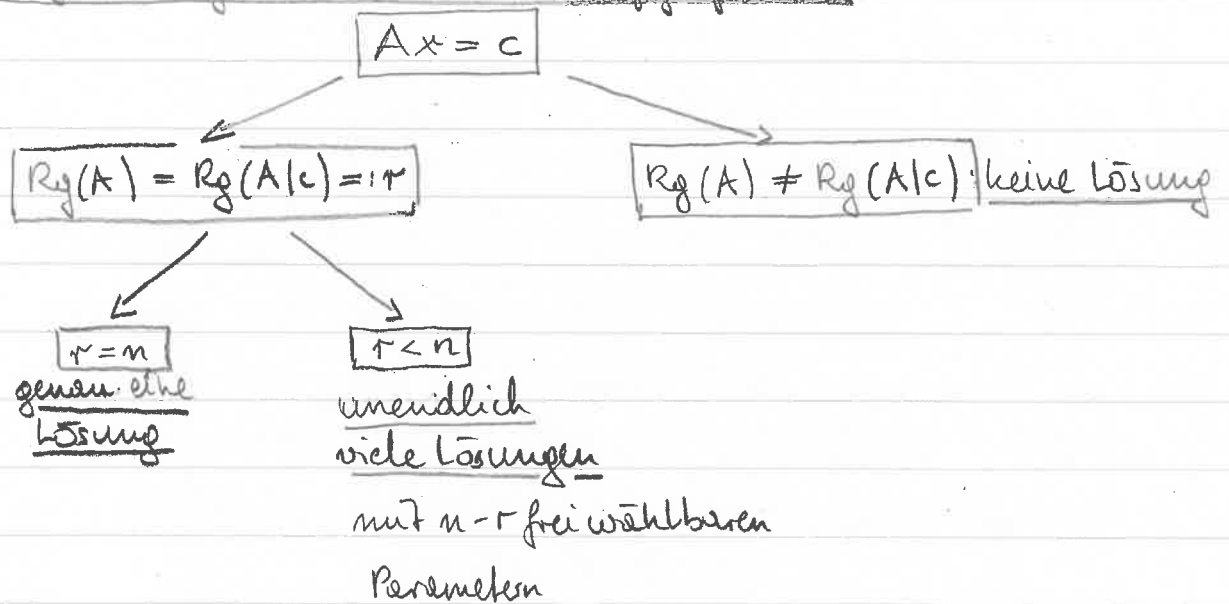 Ax = c
Rg(A) = Rg(A|c) =: r
Rg(A) ≠ Rg(A|c) : keine Lösung
r = n
r < n
genau eine
Lösung
unendlich
viele Lösungen
mit n-r frei wählbaren
Parametern